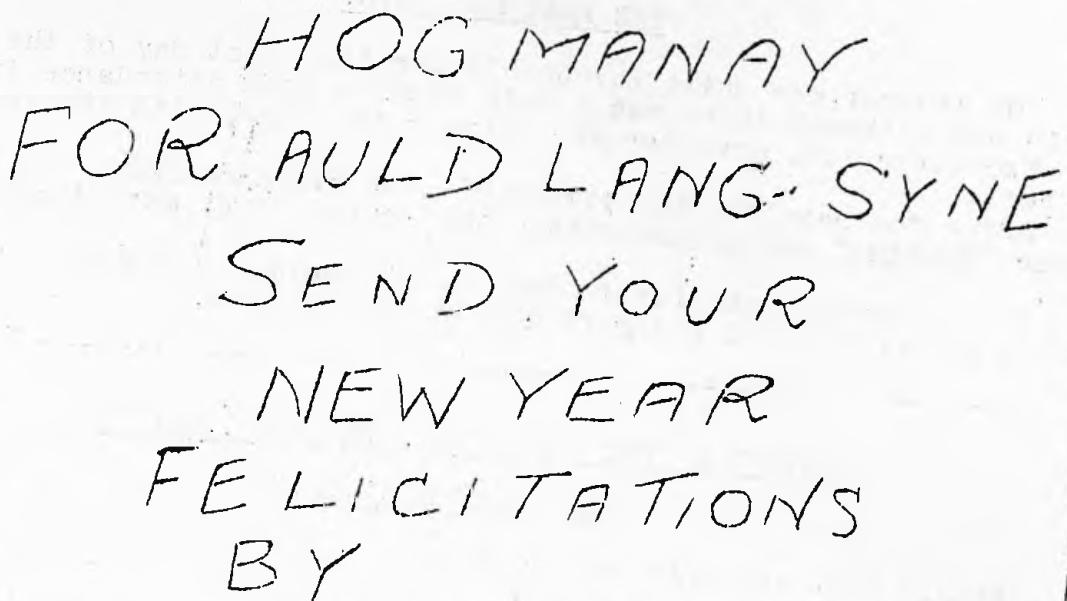 HOGMANAY
FOR AULD LANG-SYNE
SEND YOUR
NEW YEAR
FELICITATIONS
BY